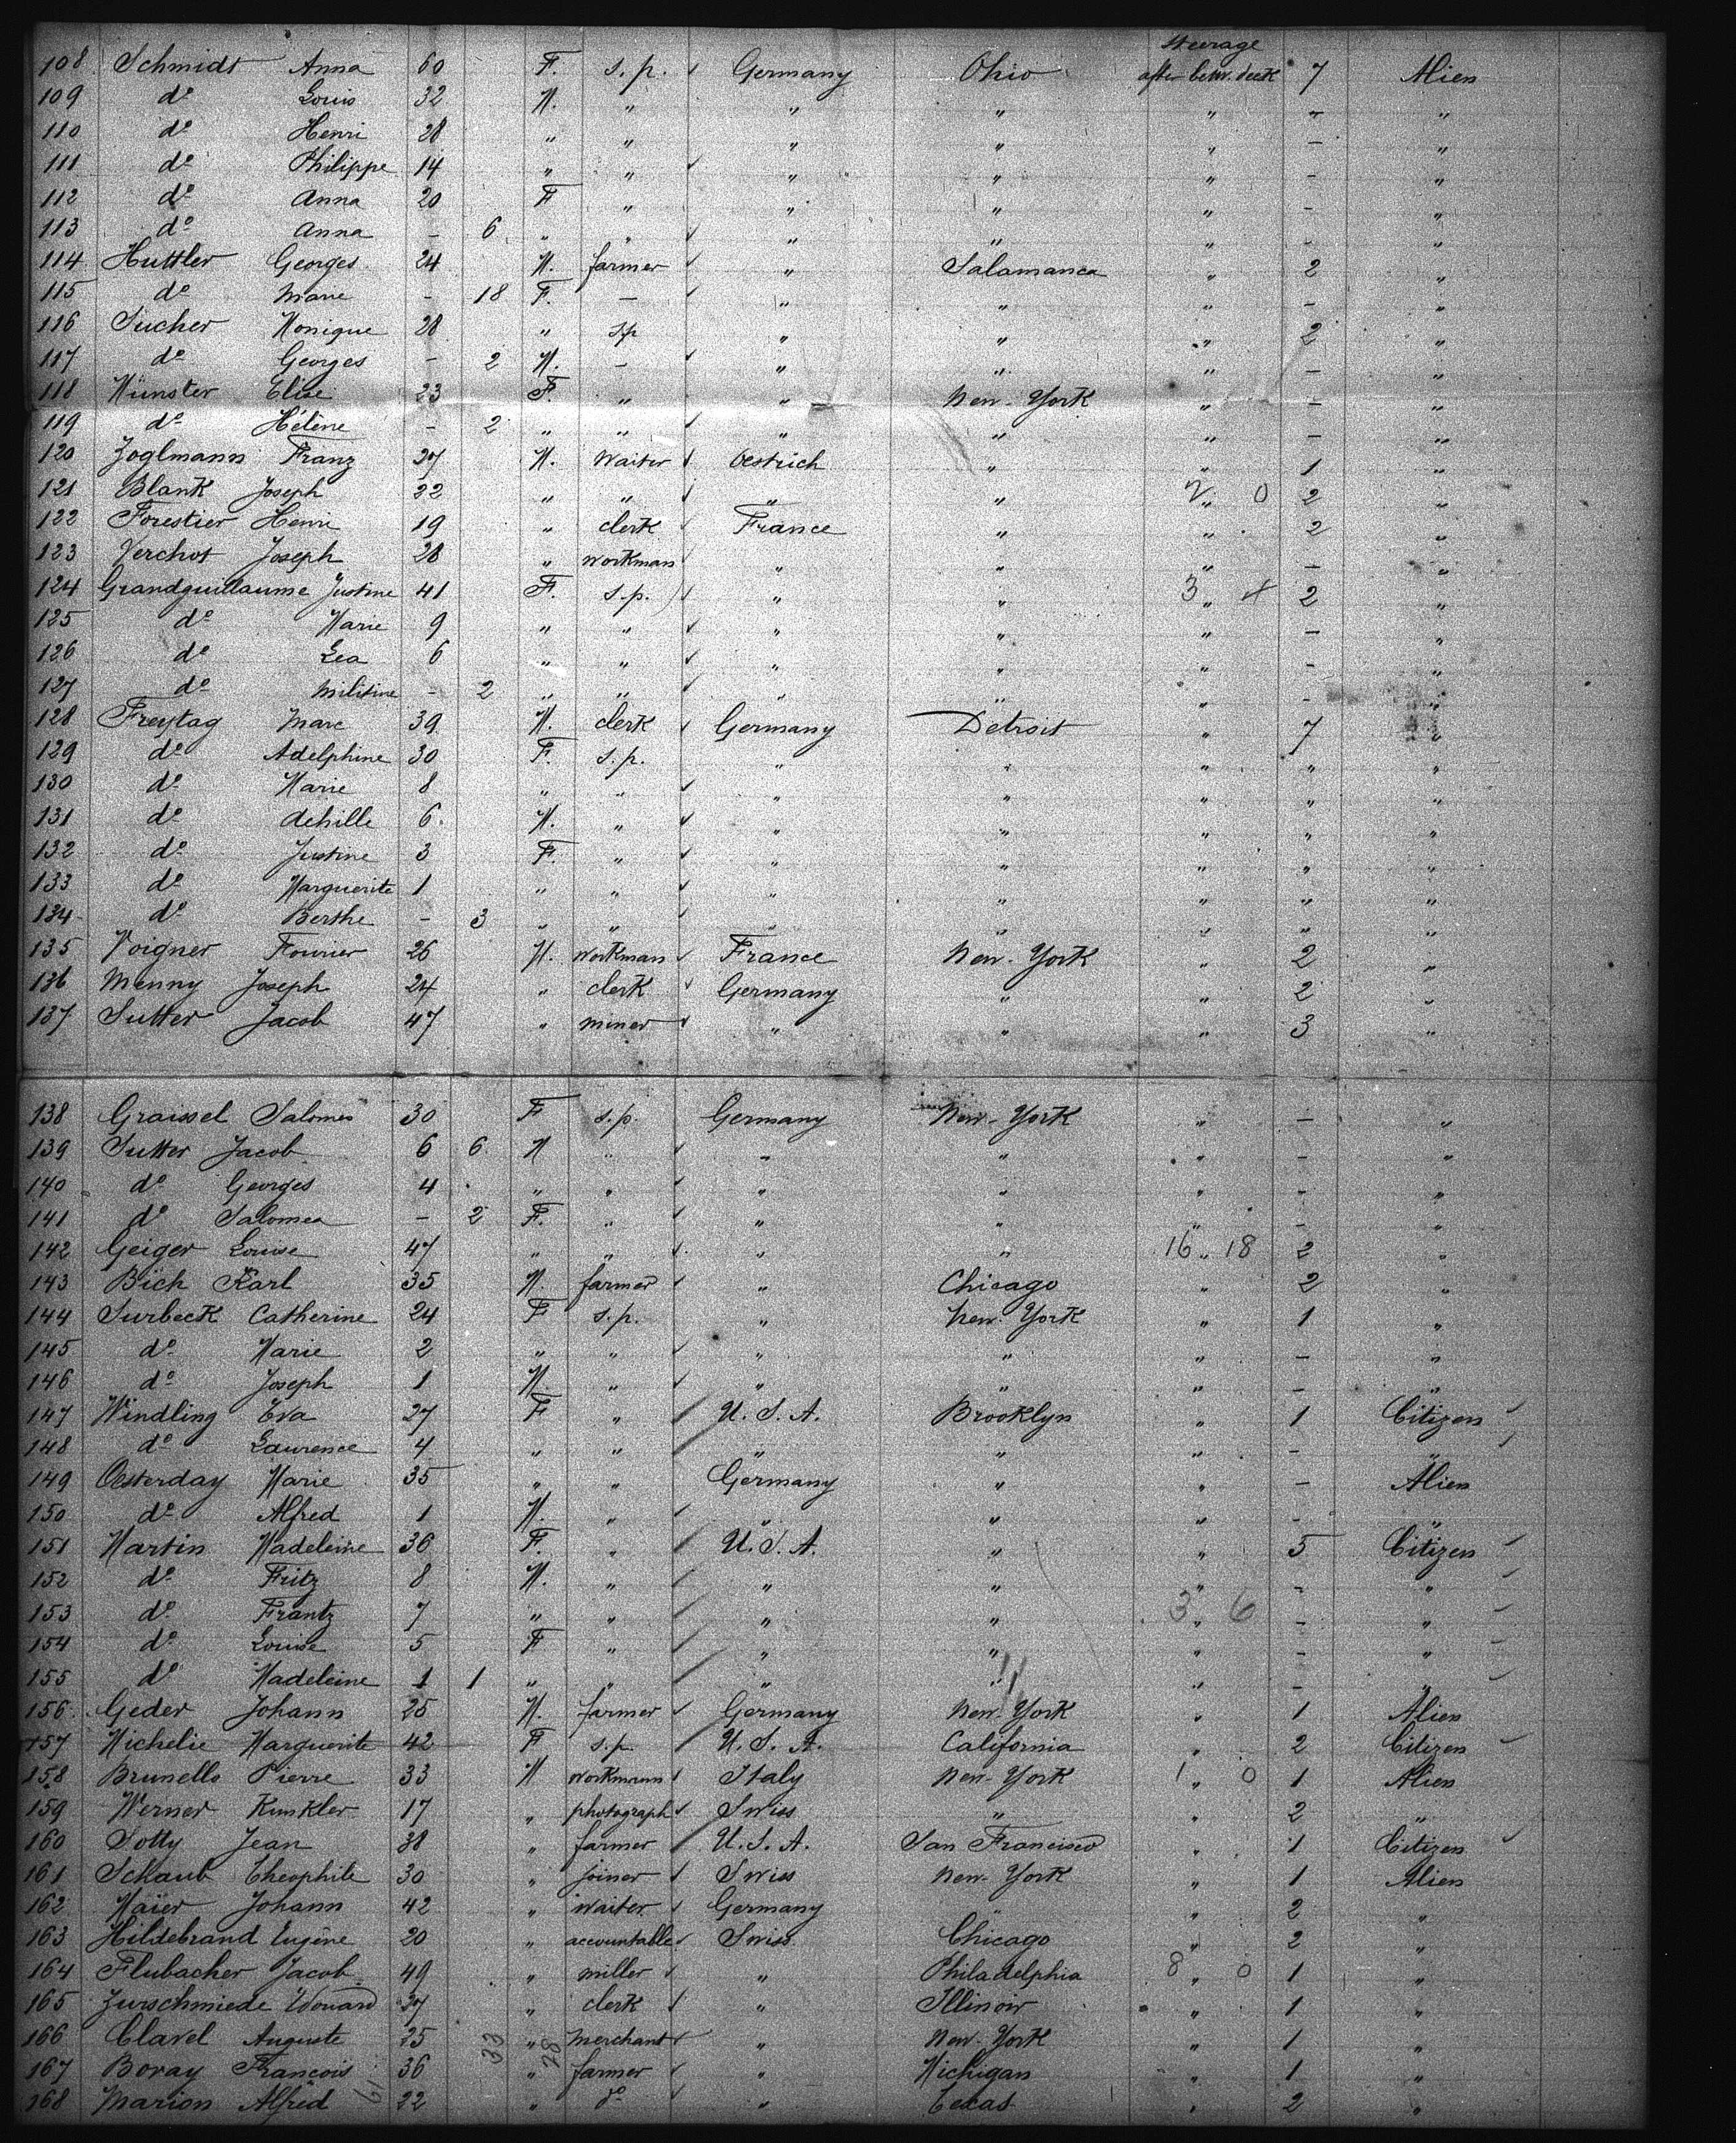 Steerage
108 Schmidt Anna 60 F. s.p. Germany Ohio after betw. deck 7 Alien
109 do Louis 32 M. " " " " - "
110 do Henri 28 " " " " " - "
111 do Philippe 14 " " " " " - "
112 do Anna 20 F " " " " - "
113 do Anna - 6 " " " " " - "
114 Huttler Georges 24 M. farmer " Salamanca " 2 "
115 do Marie - 18 F. - " " " - "
116 Sucher Monique 28 " s.p " " " 2 "
117 do Georges - 2 M. - " " " - "
118 Münster Elise 23 F. " " New-York " - "
119 do Hélène - 2 " " " " " - "
120 Joglmann Franz 27 M. Waiter Oestrich " " 1 "
121 Blank Joseph 22 " " " " 2 " 0 2 "
122 Forestier Henri 19 " clerk France " " 2 "
123 Verchot Joseph 28 " workman " " " - "
124 Grandguillaume Justine 41 F. s.p. " " 3 " 4 2 "
125 do Marie 9 " " " " " - "
126 do Lea 6 " " " " " - "
127 do Militine - 2 " " " " " - "
128 Freytag Marc 39 M. clerk Germany Detroit " 7 "
129 do Adelphine 30 F. s.p. " " " " "
130 do Marie 8 " " " " " " "
131 do Achille 6 M. " " " " " "
132 do Justine 3 F. " " " " " "
133 do Marguerite 1 " " " " " " "
134 do Berthe - 3 " " " " " " "
135 Voigner Fourier 26 M. workman France New-York " 2 "
136 Menny Joseph 24 " clerk Germany " " 2 "
137 Sutter Jacob 47 " miner " " " 3 "
138 Graissel Salomes 30 F s.p. Germany New-York " - "
139 Sutter Jacob 6 6 M " " " " - "
140 do Georges 4 " " " " " - "
141 do Salomea - 2 F. " " " " - "
142 Geiger Louise 47 " " " " 16 " 18 2 "
143 Bich Karl 35 M. farmer " Chicago " 2 "
144 Surbeck Catherine 24 F s.p. " New-York " 1 "
145 do Marie 2 " " " " " - "
146 do Joseph 1 M " " " " - "
147 Windling Eva 27 F " U.S.A. Brooklyn " 1 Citizen
148 do Laurence 4 " " " " " - "
149 Oesterday Marie 35 " " Germany " " - Alien
150 do Alfred 1 M. " " " " - "
151 Martin Madeleine 36 F. " U.S.A. " " 5 Citizen
152 do Fritz 8 M. " " " " - "
153 do Frantz 7 " " " " 3 " 6 - "
154 do Louise 5 F " " " " - "
155 do Madeleine 1 1 " " " " " - "
156 Geder Johann 25 M. farmer Germany New-York " 1 Alien
157 Michelie Marguerite 42 F s.p. U.S.A. California " 2 Citizen
158 Brunello Pierre 33 M workmann Italy New-York 1 " 0 1 Alien
159 Werner Kunkler 17 " photograph Swiss " " 2 "
160 Sotty Jean 38 " farmer U.S.A. San Francisco " 1 Citizen
161 Schaub Theophile 30 " joiner Swiss New-York " 1 Alien
162 Maïer Johann 42 " waiter Germany " " 2 "
163 Hildebrand Eugène 20 " accountable Swiss Chicago " 2 "
164 Flubacher Jacob 49 " miller " Philadelphia 8 " 0 1 "
165 Zurschmiede Edouard 37 " clerk " Illinois " 1 "
166 Clavel Auguste 25 33 " 28 merchant " New-York " 1 "
167 Boray Francois 36 " farmer " Michigan " 1 "
168 Marion Alfred 61 22 " do " Texas " 2 "